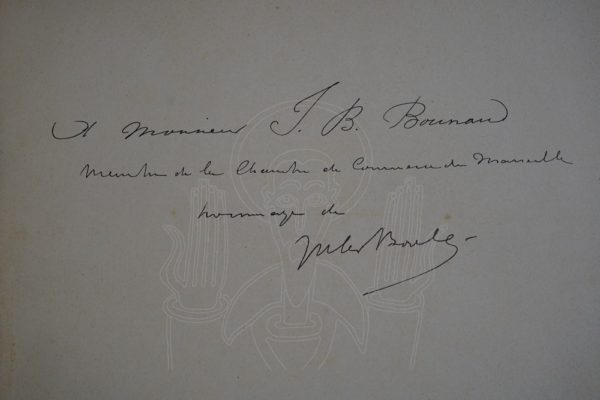 A Monsieur J. B. Bounaud
Membre de la Chambre de Commerce de Marseille
hommage de
Jules Boully